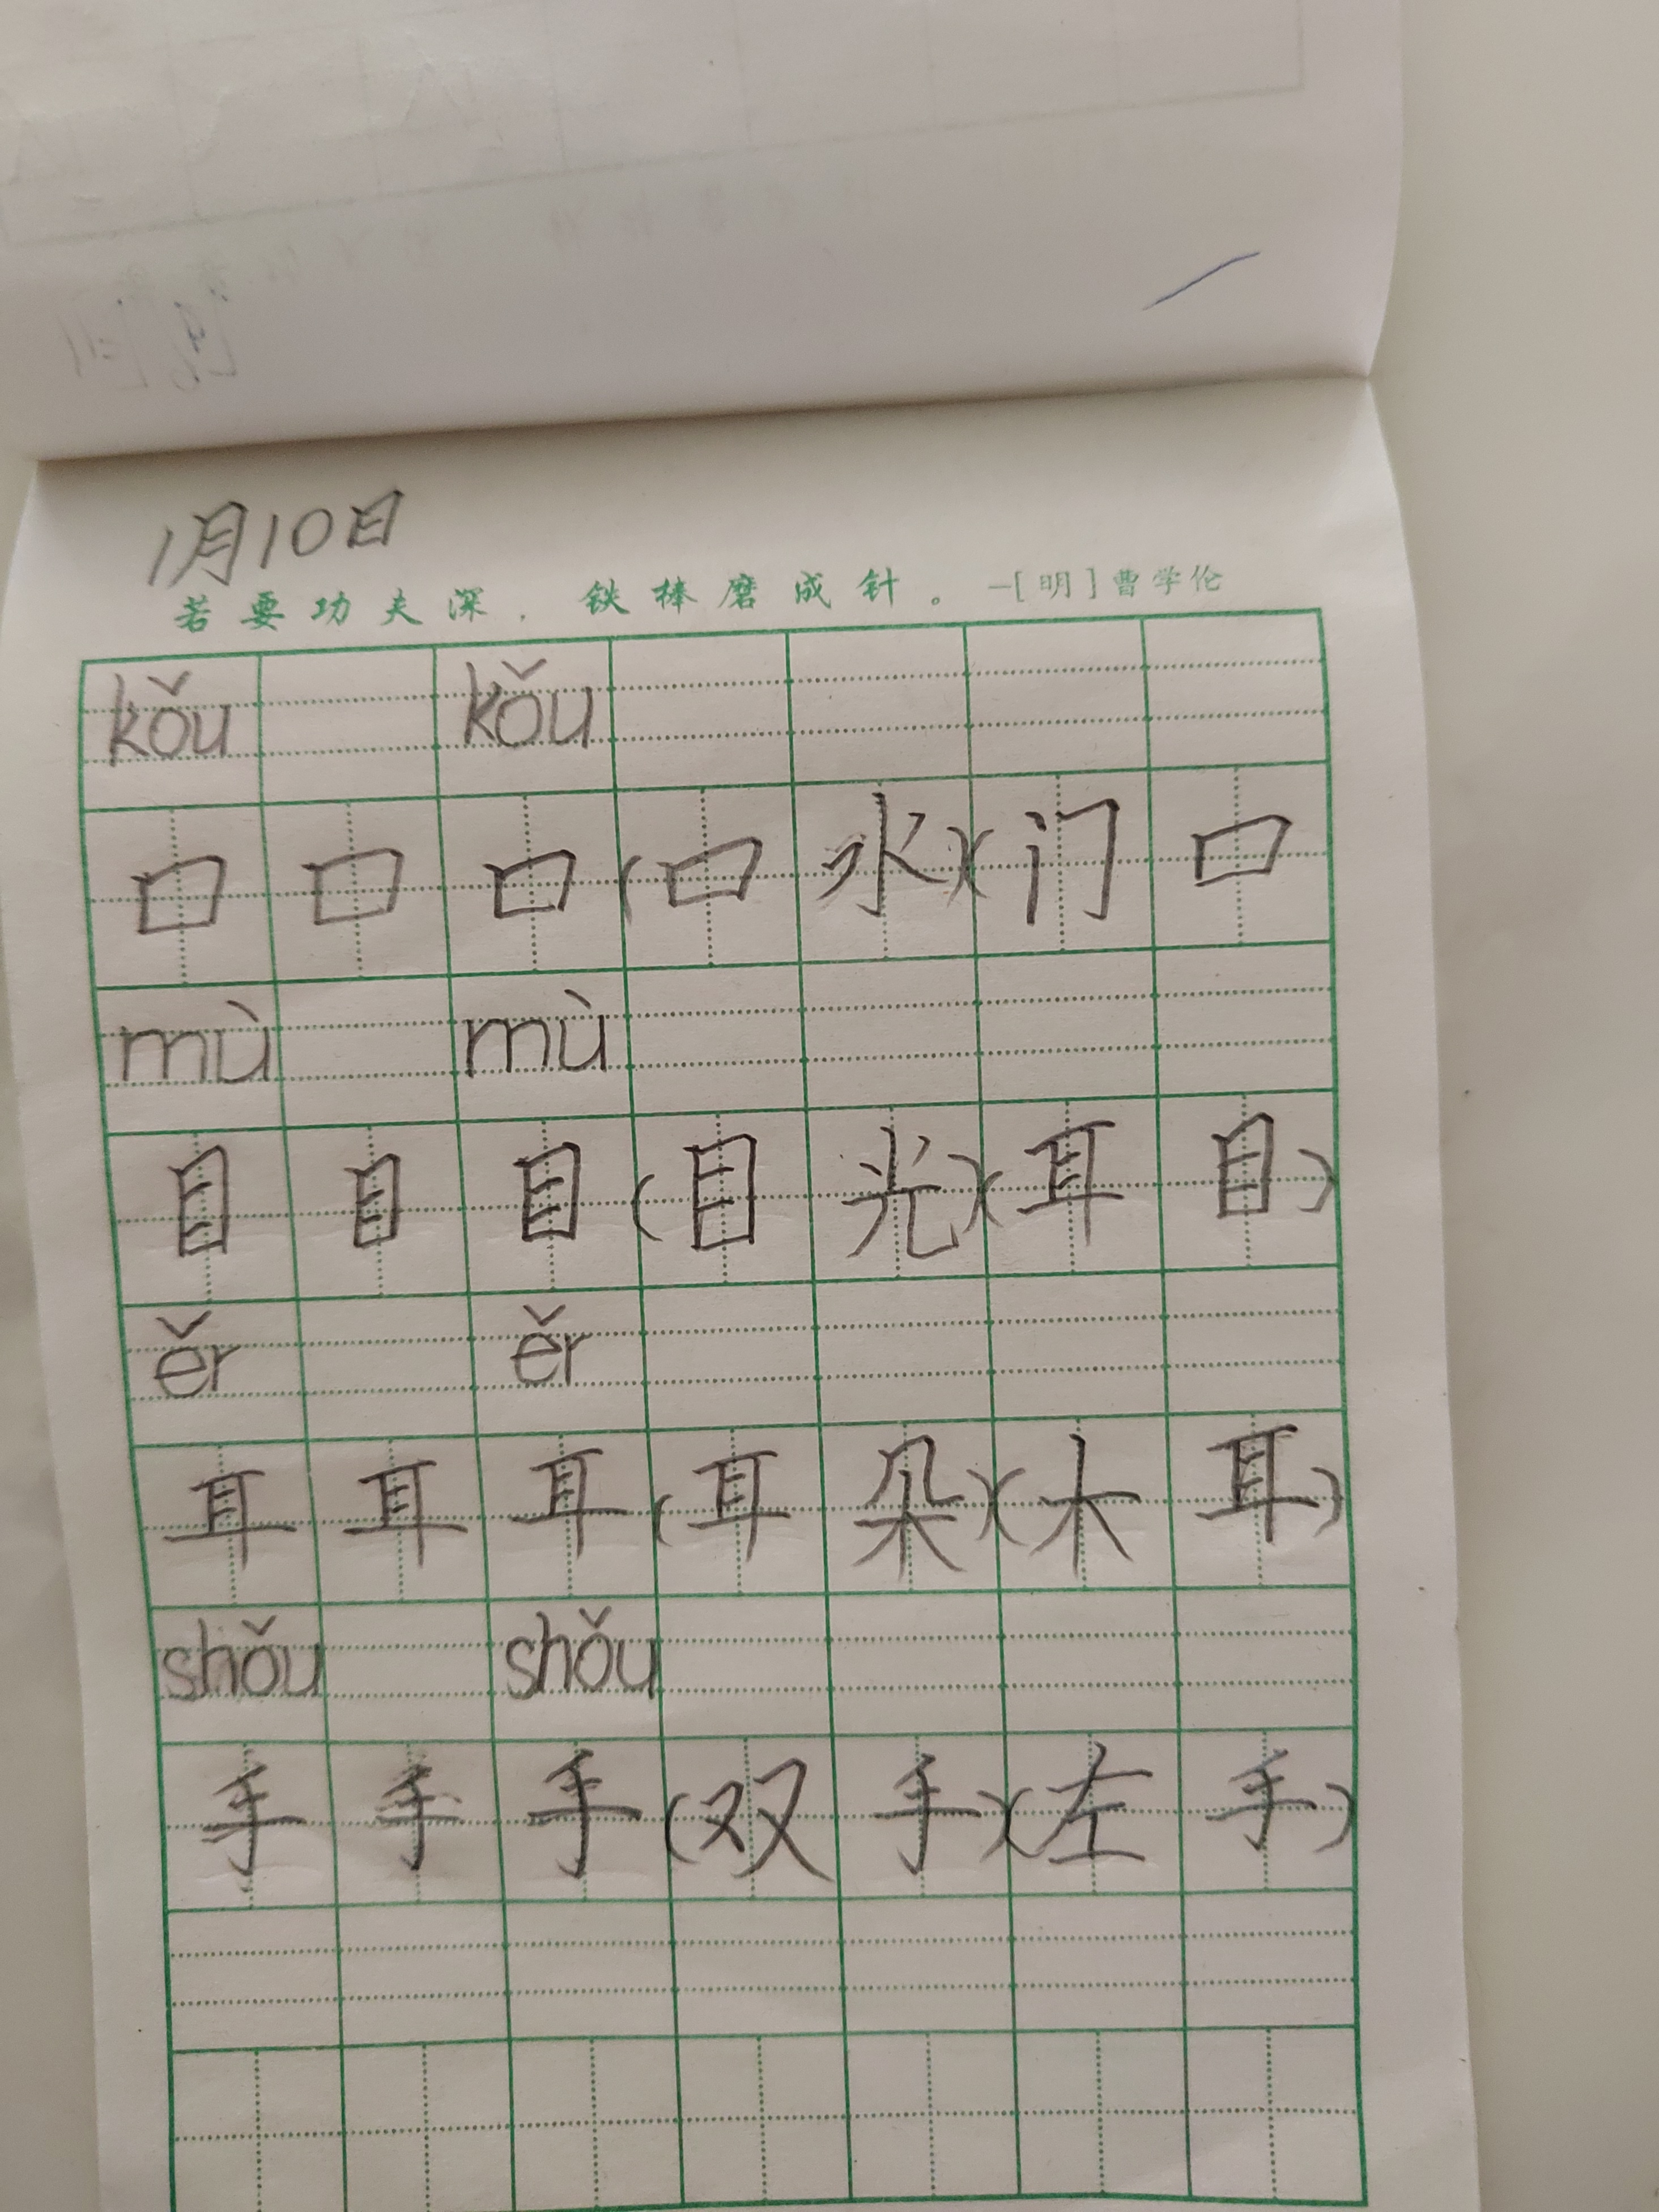 1月10日
若要功夫深，铁棒磨成针。—[明]曹学伦
kǒu kǒu
口口口(口水)(门口
mù mù
目目目(目光)(耳目)
ěr ěr
耳耳耳(耳朵)(木耳)
shǒu shǒu
手手手(双手)(左手)